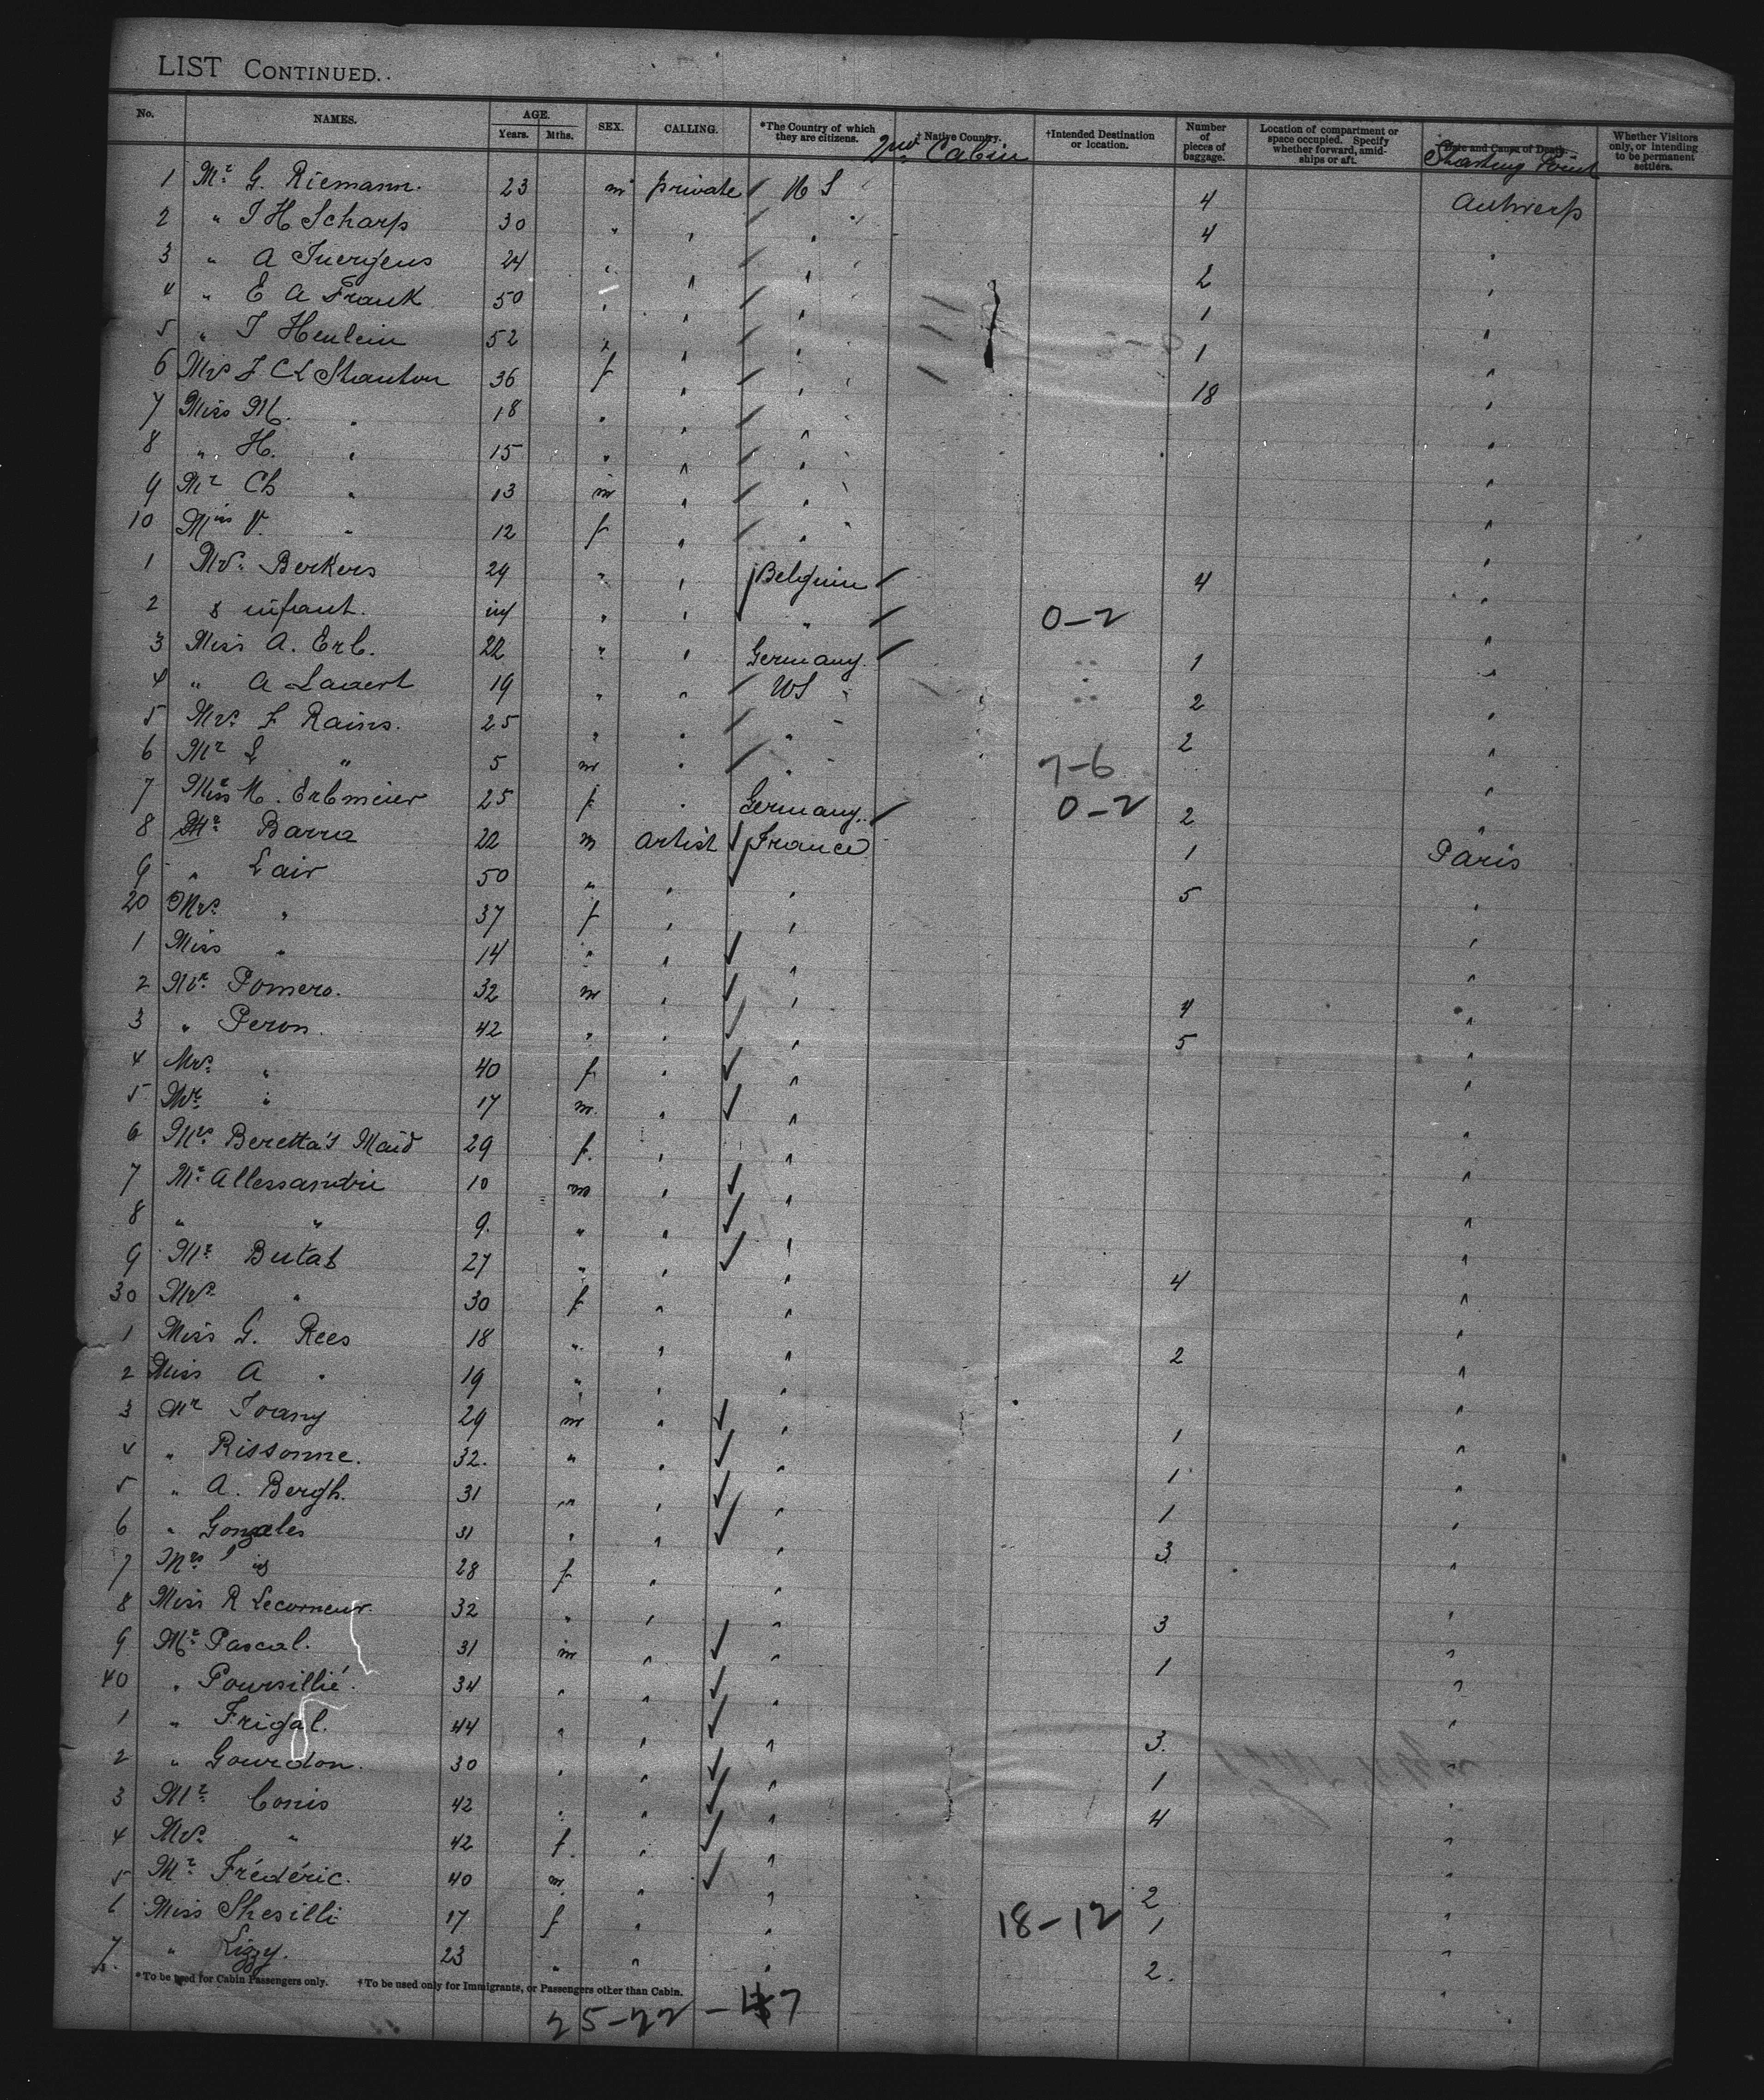 LIST CONTINUED.
No. NAMES. AGE. Years. Mths. SEX. CALLING. *The Country of which they are citizens. † Native Country. †Intended Destination or location. Number of pieces of baggage. Location of compartment or space occupied. Specify whether forward, amidships or aft. Date and Cause of Death. Whether Visitors only, or intending to be permanent settlers.
2nd Cabin Starting Point
1 Mr G. Riemann. 23 m private / U S 4 Antwerp
2 " J H Scharps 30 " " / " 4 "
3 " A Juergens 24 " " / " 2 "
4 " E A Frank 50 " " / " 1 "
5 " J Henlein 52 " " / " 1 "
6 Mrs F C L Stanton 36 f " / " 18 "
7 Miss M. " 18 " " / " "
8 " H. " 15 " " / " "
9 Mr Ch " 13 m " / " "
10 Miss V. " 12 f " / " "
1 Mrs. Berkers 29 " " Belgium / 4 "
2 & infant. inf " " " / 0-2 "
3 Miss A. Erb. 22 " " Germany. / 1 "
4 " A Lauert 19 " " / US 2 "
5 Mrs. F Rains. 25 " " / " 2 "
6 Mr L " 5 m " / " 7-6 "
7 Miss M. Erbmeier 25 f " Germany. / 0-2 2 "
8 Mr Barra 22 m artist ✓ France 1 Paris
9 " Lair 50 " " ✓ " 5 "
20 Mrs. " 37 f " " "
1 Miss " 14 " " ✓ " "
2 Mr. Pomero. 32 m " ✓ " 4 "
3 " Peron. 42 " " ✓ " 5 "
4 Mrs. " 40 f " ✓ " "
5 Mr. " 17 m. " ✓ " "
6 Mrs. Beretta's Maid 29 f. " " "
7 Mr. Allessandri 10 m " ✓ " "
8 " " 9. " " ✓ " "
9 Mr. Butat 27 " " ✓ " 4 "
30 Mrs. " 30 f " " "
1 Miss G. Rees 18 " " " 2 "
2 Miss A " 19 " " " "
3 Mr Joany 29 m " ✓ " 1 "
4 " Rissonne. 32. " " ✓ " 1 "
5 " A. Bergh. 31 " " ✓ " 1 "
6 " Gonzales 31 " " ✓ " 3 "
7 Mrs " 28 f " " "
8 Miss R Lecorneur. 32 " " " 3 "
9 Mr. Pascal. 31 m " ✓ " 1 "
40 " Poursillié. 34 " " ✓ " "
1 " Frigal. 44 " " ✓ " 3. "
2 " Gourdon. 30 " " ✓ " 1 "
3 Mr. Conis 42 " " ✓ " 4 "
4 Mrs. " 42 f. " ✓ " "
5 Mr. Frédéric. 40 m " ✓ " 2 "
6 Miss Shesilli 17 f " " 18-12 1 "
7 " Lizzy. 23 " " " 2. "
*To be used for Cabin Passengers only. †To be used only for Immigrants, or Passengers other than Cabin.
25-22-47